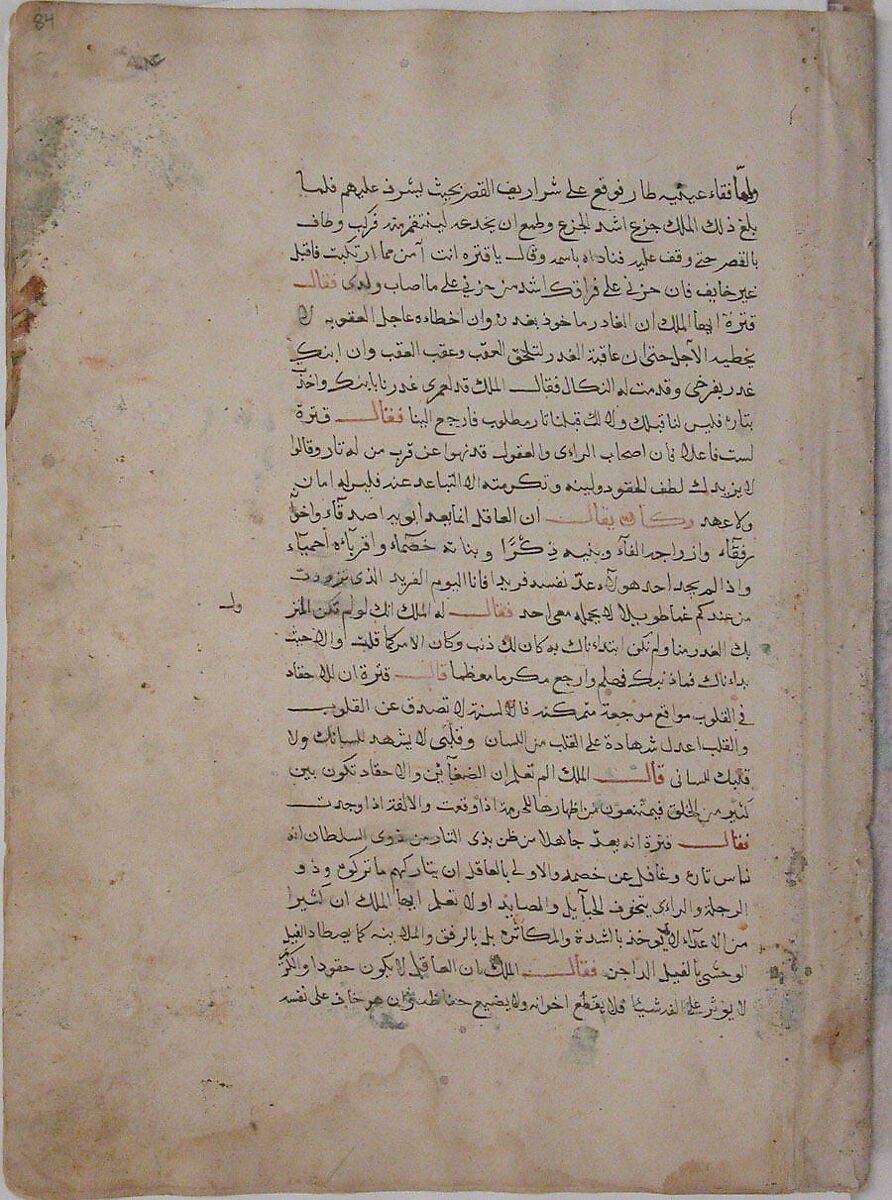 84
ولما فقاء عينيه طار فوقع على شراريف القصر بحيث يشرف عليهم فلما
بلغ ذلك الملك جزع اشد الجزع وطمع ان يخدعه لينتقم منه فركب وطاف
بالقصر حتى وقف عليه فناداه باسمه وقال يا قتره انت آمن مما ارتكبت فاقبل
غير خايف فان حزنى على فراقك اشد من حزني على ما اصاب ولدى فقال
قترة ايها الملك ان الغادر ماخوذ بغدره وان اخطاه عاجل العقوبه لا
يخطيه الآجل حتى ان عاقبة الغدر لتلحق العقب وعقب العقب وان ابنك
غدر بفرخى وقدمت له النكال فقال الملك قد لعمرى غدرنا بابنك واخذت
بتارك فليس لنا قبلك ولا لك قبلنا تار مطلوب فارجع الينا فقال قترة
لست فاعلا فان اصحاب الراءى والعقول قد نهوا عن قرب من له تار وقالوا
لا يزيدك لطف الحقود ولينه وتكرمته الا التباعد عنه فليس له امان
ولا عهد وكان يقال ان العاقل انما يعد ابويه اصدقاء واخوته
رفقاء وازواجه الفآء وبنيه ذكرا وبناته خصماء واقرباءه احمياء
واذا لم يجد احد هولآء عد نفسه فريدا فانا اليوم الفريد الذى تزودت
من عندكم غما طويلا لا يحمله معى احد فقال له الملك انك لو لم تكن المنز
ول
بك الغدر منا ولم نكن ابتداناك به كان لك ذنب وكان الامر كما قلت والا حيث
بداناك فما ذنبك فهلم وارجع مكرما معظما قال قترة ان للاحقاد
في القلوب مواقع موجعة متمكنه فالالسنة لا تصدق عن القلوب
والقلب اعدل شهادة على القلب من اللسان وقلبى لا يشهد للسانك ولا
قلبك للسانى قال الملك الم تعلم ان الضغآئن والاحقاد تكون بين
كثير من الخلق فيمتنعون من اظهارها للحرمة اذا وقعت والالفة اذا وجدت
فقال قترة انه يعد جاهلا من ظن بذى التار من ذوى السلطان انه
ناس تاره وغافل عن خصمه والاولى بالعاقل ان يتاركهم ما تركوه وذو
الرجلة والراءى يتخوف الحبآيل والمصايد اولا تعلم ايها الملك ان كثيرا
من الاعداء لا يوخذ بالشدة والمكاثره بل بالرفق والملاينه كما يصطاد الفيل
الوحشى بالفيل الداجن فقال الملك ان العاقل لا يكون حقودا والكريم
لا يوثر على الفه شيئا فلا يقطع اخوانه ولا يضيع حفاظه وان هو خاف على نفسه